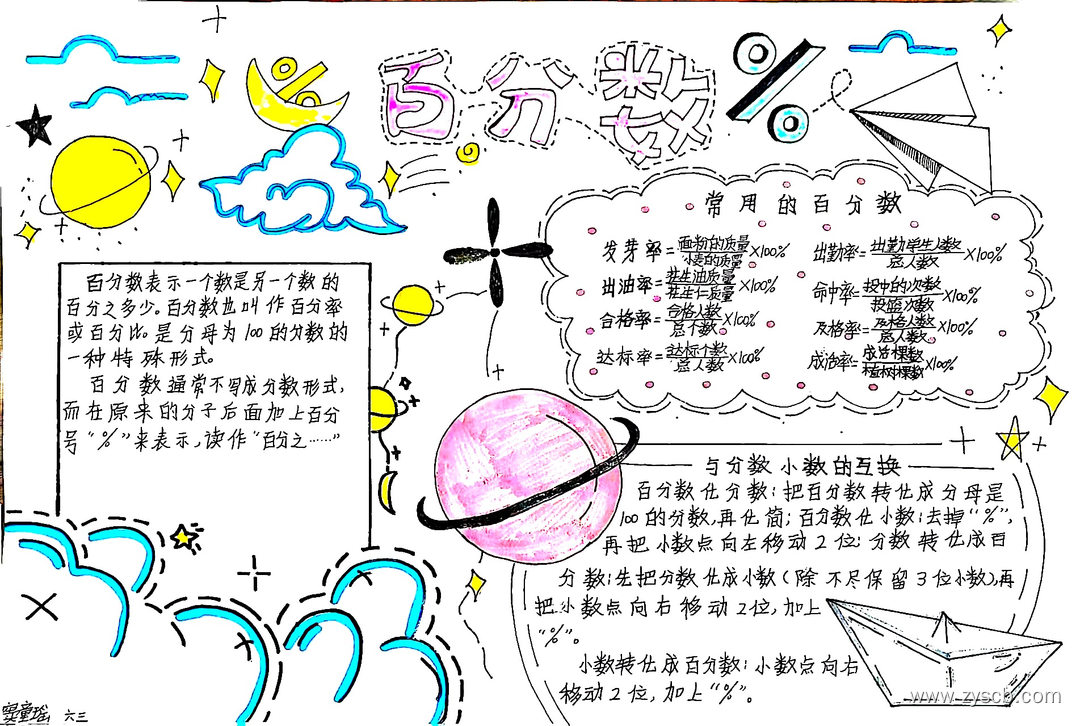 百分数
%
%
常用的百分数
发芽率=面粉的质量/小麦的质量×100%
出勤率=出勤学生人数/总人数×100%
出油率=花生油质量/花生仁质量×100%
命中率=投中的次数/投篮次数×100%
合格率=合格人数/总不数×100%
及格率=及格人数/总人数×100%
达标率=达标个数/总人数×100%
成活率=成活棵数/植树棵数×100%
百分数表示一个数是另一个数的
百分之多少。百分数也叫作百分率
或百分比。是分母为100的分数的
一种特殊形式。
百分数通常不写成分数形式,
而在原来的分子后面加上百分
号“%”来表示,读作“百分之……”
与分数小数的互换
百分数化分数:把百分数转化成分母是
100的分数,再化简;百分数化小数:去掉“%”,
再把小数点向左移动2位;分数转化成百
分数:先把分数化成小数(除不尽保留3位小数),再
把小数点向右移动2位,加上
“%”。
小数转化成百分数:小数点向右
移动2位,加上“%”。
童瑶 六三
www.zyscb.com